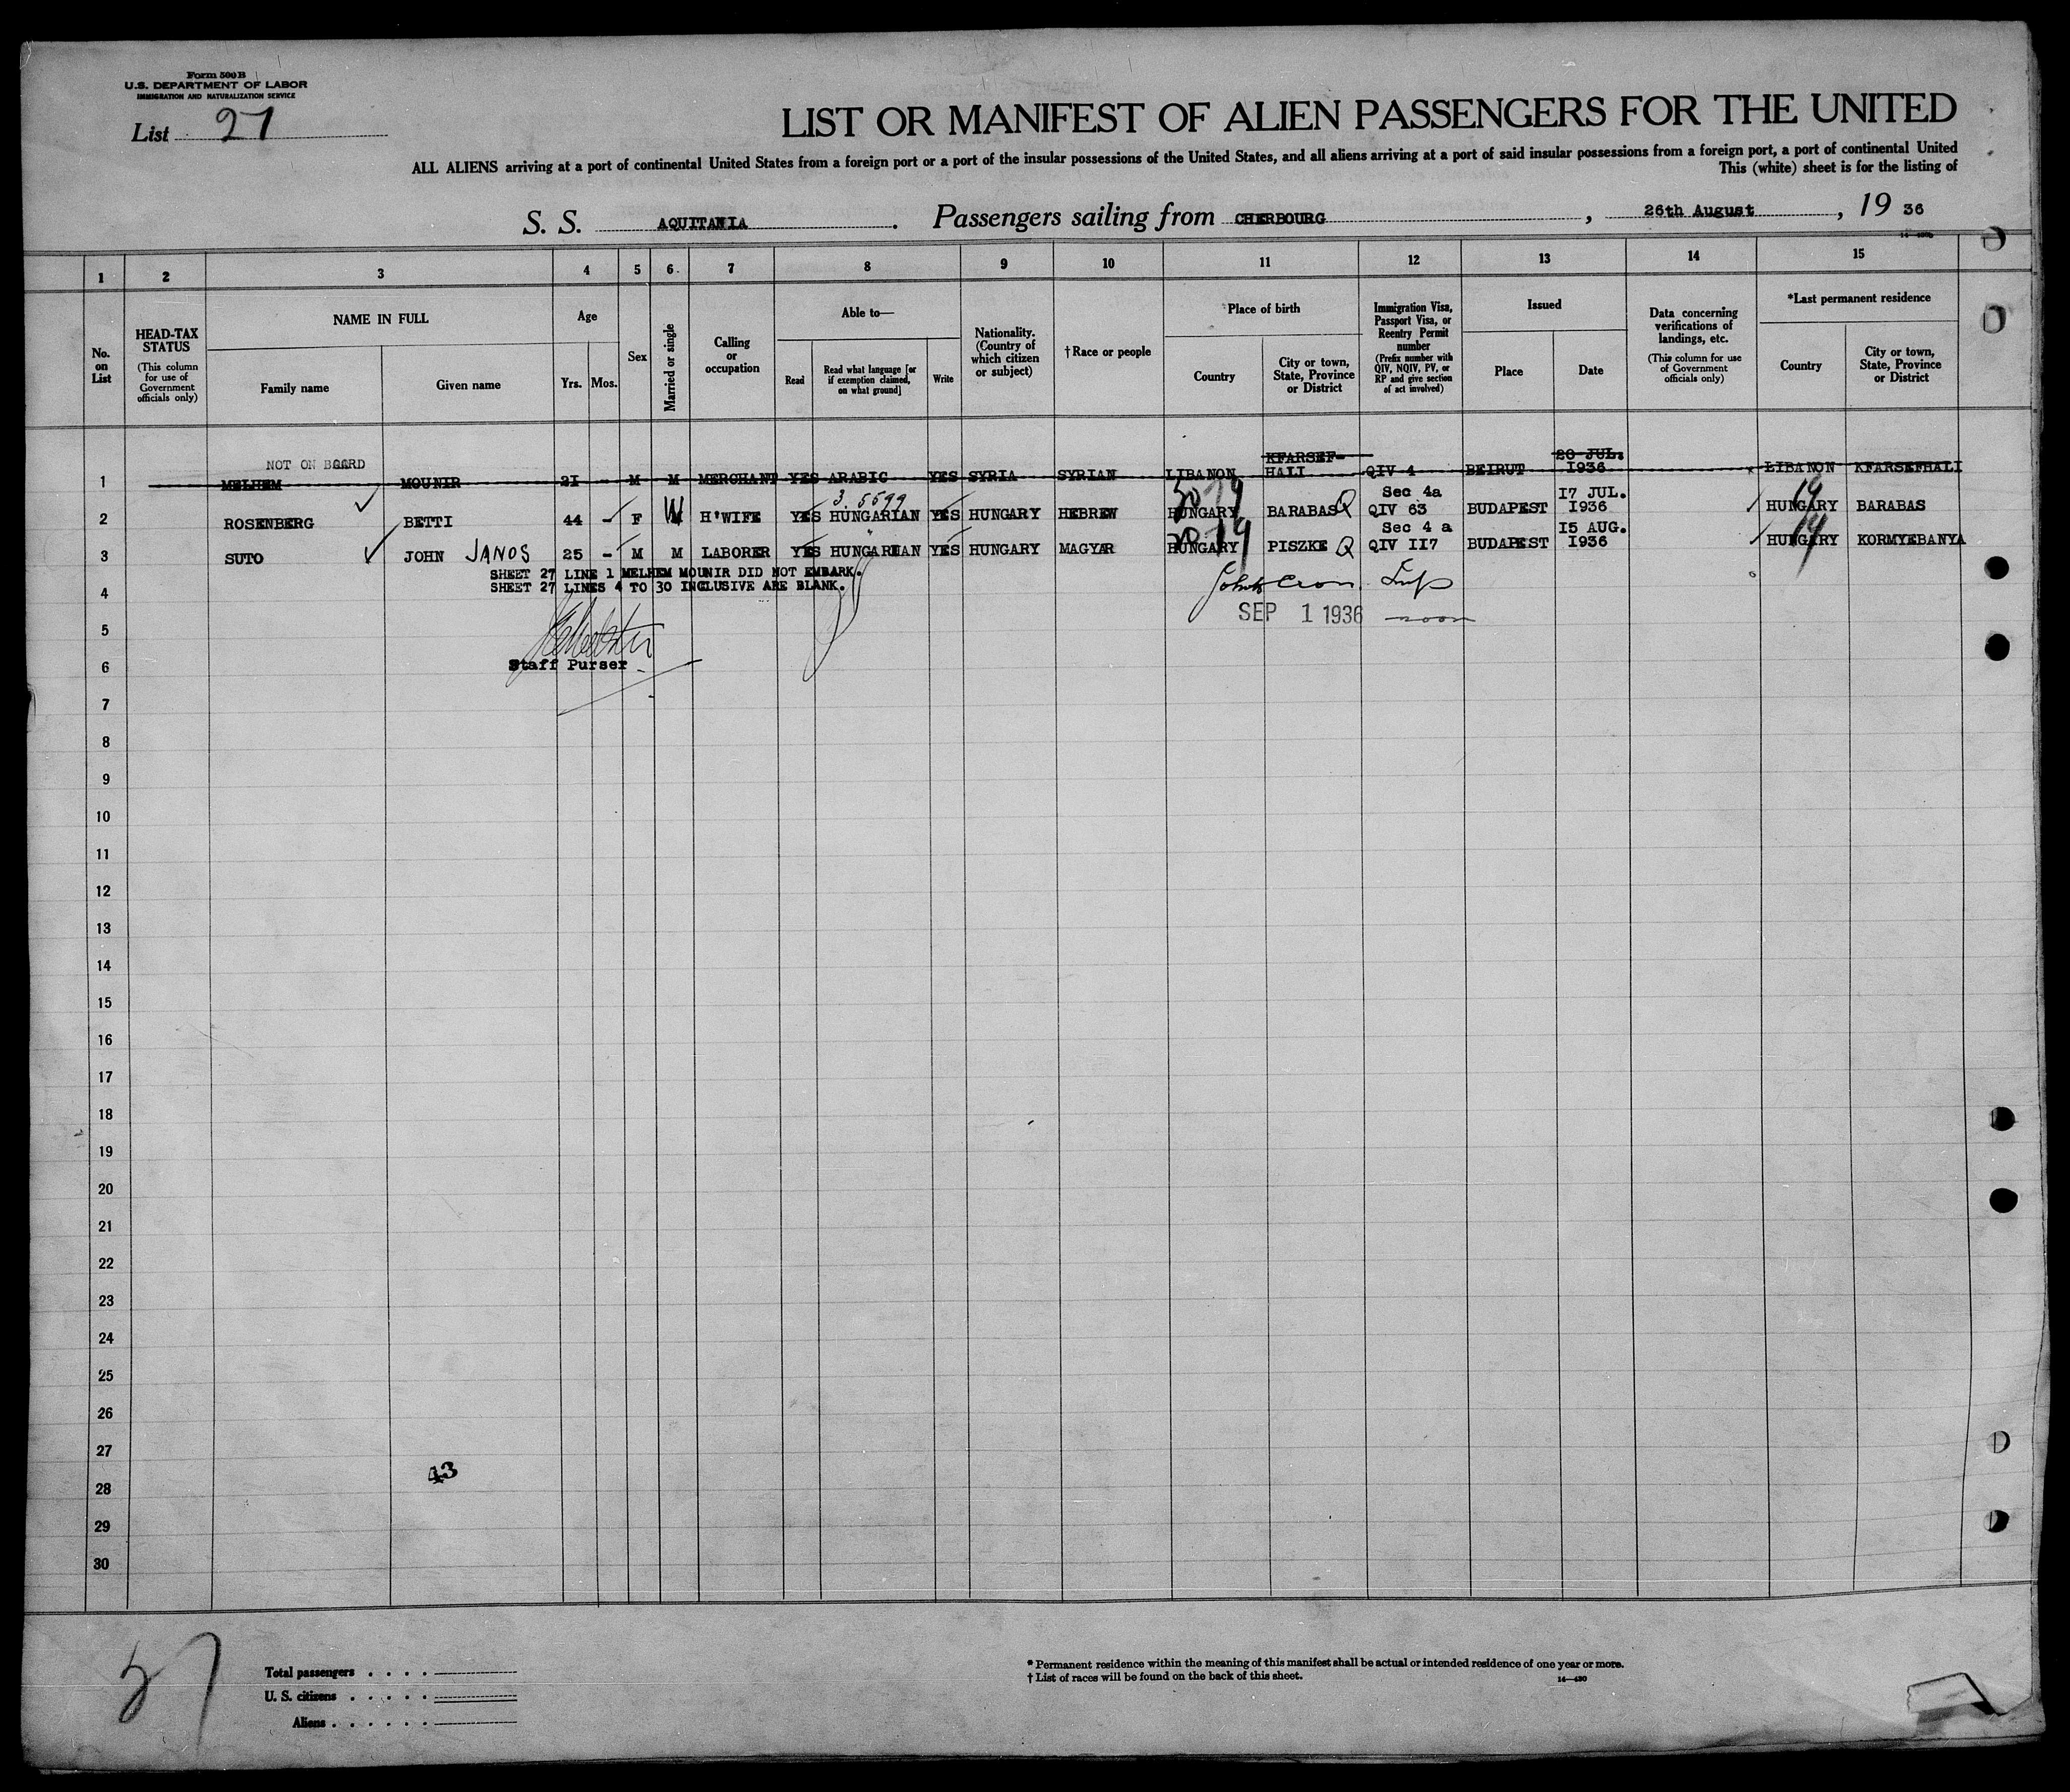 Form 500 B
U.S. DEPARTMENT OF LABOR
IMMIGRATION AND NATURALIZATION SERVICE
List 27
LIST OR MANIFEST OF ALIEN PASSENGERS FOR THE UNITED
ALL ALIENS arriving at a port of continental United States from a foreign port or a port of the insular possessions of the United States, and all aliens arriving at a port of said insular possessions from a foreign port, a port of continental United
This (white) sheet is for the listing of
S. S. AQUITANIA. Passengers sailing from CHERBOURG, 26th August, 19 36
1 2 3 4 5 6 7 8 9 10 11 12 13 14 15
No. on List
HEAD-TAX STATUS
(This column for use of Government officials only)
NAME IN FULL
Family name
Given name
Age
Yrs. Mos.
Sex
Married or single
Calling or occupation
Able to—
Read
Read what language [or if exemption claimed, on what ground]
Write
Nationality. (Country of which citizen or subject)
†Race or people
Place of birth
Country
City or town, State, Province or District
Immigration Visa, Passport Visa, or Reentry Permit number
(Prefix number with QIV, NQIV, PV, or RP and give section of act involved)
Issued
Place
Date
Data concerning verifications of landings, etc.
(This column for use of Government officials only)
*Last permanent residence
Country
City or town, State, Province or District
NOT ON BOARD
1 MELHEM MOUNIR 21 - M M MERCHANT YES ARABIC YES SYRIA SYRIAN LIBANON KFARSEF-HALI QIV 4 BEIRUT 20 JUL. 1936 LIBANON KFARSEFHALI
3. 5599
2 ROSENBERG BETTI 44 - F W H'WIFE YES HUNGARIAN YES HUNGARY HEBREW HUNGARY BARABAS Q Sec 4a QIV 63 BUDAPEST 17 JUL. 1936 HUNGARY BARABAS
3 SUTO JOHN JANOS 25 - M M LABORER YES HUNGARIAN YES HUNGARY MAGYAR HUNGARY PISZKE Q Sec 4 a QIV 117 BUDAPEST 15 AUG. 1936 HUNGARY KORMYEBANYA
SHEET 27 LINE 1 MELHEM MOUNIR DID NOT EMBARK.
SHEET 27 LINES 4 TO 30 INCLUSIVE ARE BLANK.
4
SEP 1 1936 noon
5
Staff Purser
6
7
8
9
10
11
12
13
14
15
16
17
18
19
20
21
22
23
24
25
26
27
43
28
29
30
27
Total passengers
U. S. citizens
Aliens
* Permanent residence within the meaning of this manifest shall be actual or intended residence of one year or more.
† List of races will be found on the back of this sheet.